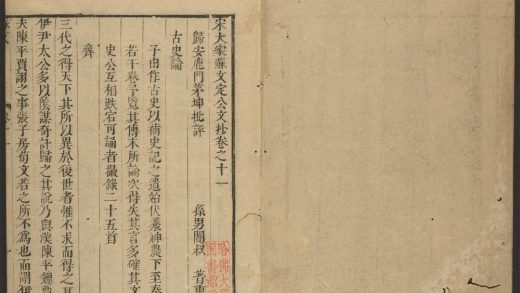 宋大家蘇文定公文抄卷之十一
歸安鹿門茅坤批評 孫男闇叔
古史論
子由作古史以補史記之遺始伏羲神農下至秦
若干卷予覽其傳末所論次得失其言多確其文
史公互相跌宕可誦者嚴錄二十五首
齊
三代之得天下其所以異於後世者惟不求而得之
伊尹太公多以陰謀奇計歸之其說乃與漢陳平魏賈
夫陳平賈詡之事張子房荀文若之所不為也而謂伊
哈佛大
圖書館